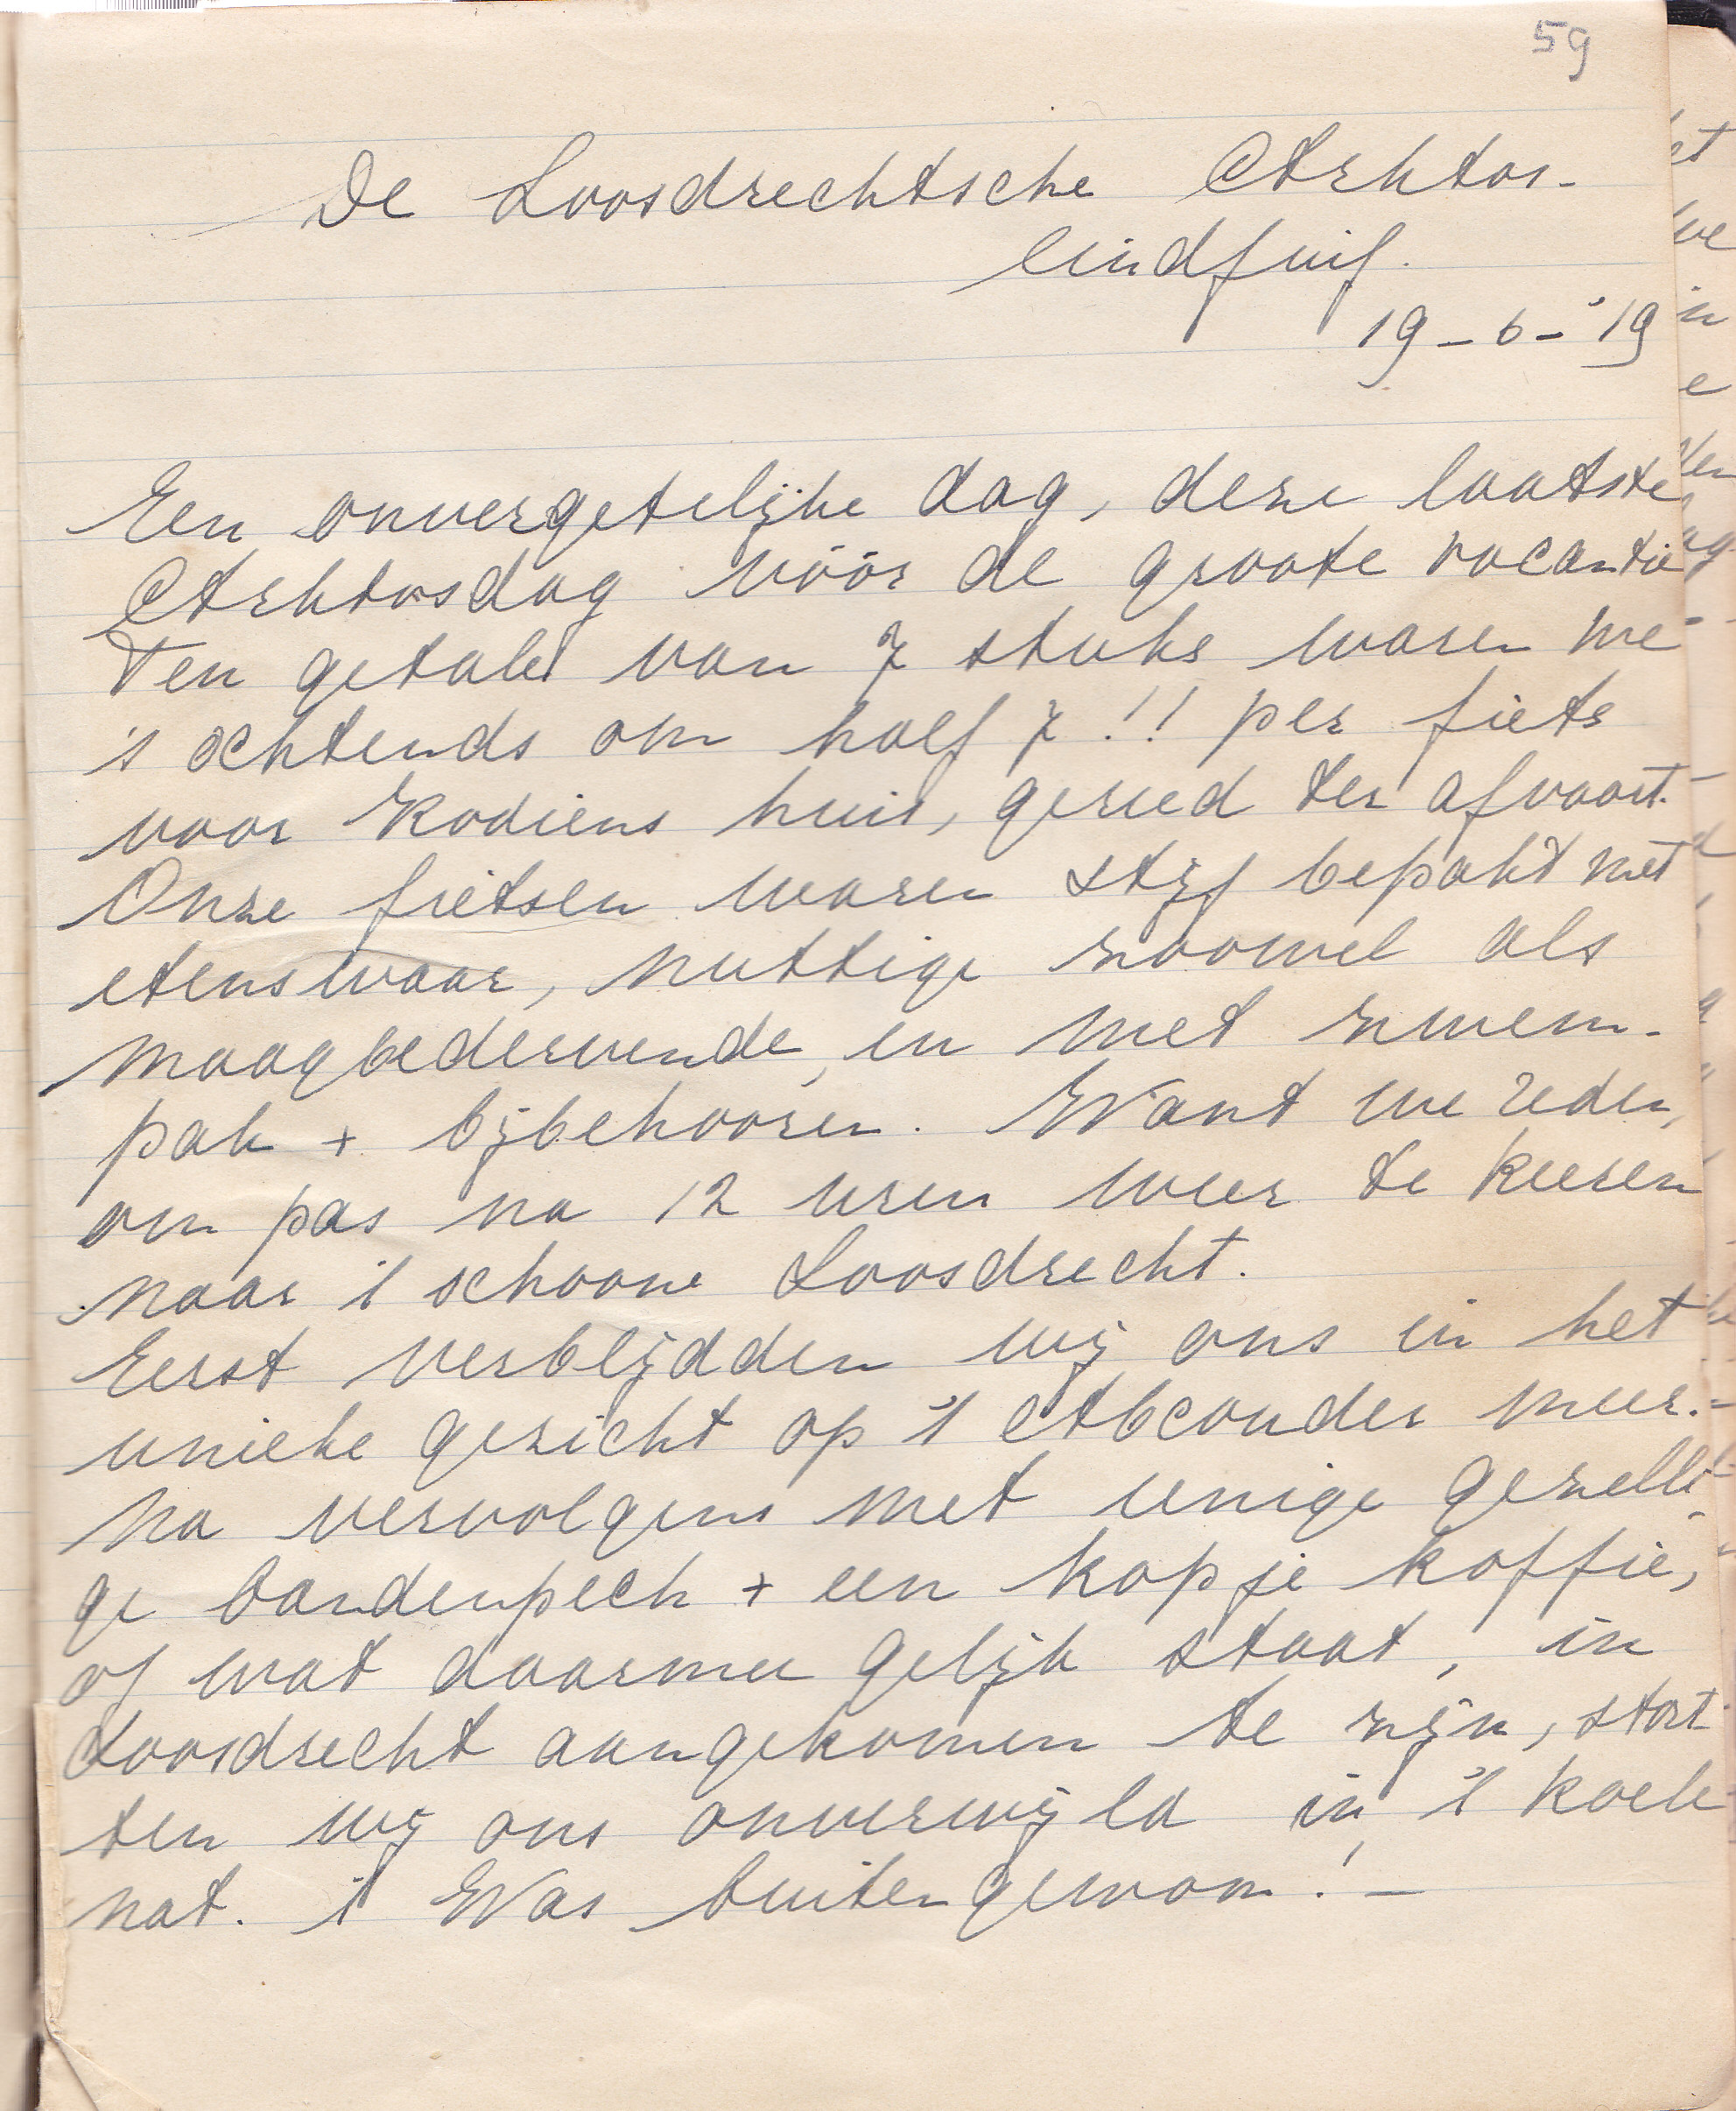 59
De Loosdrechtsche Arktos-
eindfuif.
19-6-'19
Een onvergetelijke dag, deze laatste
Arktosdag vóór de groote vacantie
Ten getale van 7 stuks waren we
's ochtends om half 7!! per fiets
voor Kodiens huis, gereed ter afvaart.
Onze fietsen waren stijf bepakt met
etenswaar, nuttige zoowel als
maagbedervende, en met zwem-
pak + bijbehooren. Want we reden,
om pas na 12 uren weer te keeren
naar 't schoone Loosdrecht.
Eerst verblijdden wij ons in het
unieke gezicht op 't Abcouder meer.
Na vervolgens met eenige gezelli-
ge bandenpech + een kopje koffie,
of wat daarmee gelijk staat, in
Loosdrecht aangekomen te zijn, stort
ten wij ons onverwijld in 't koele
nat. 't Was buitengewoon! -